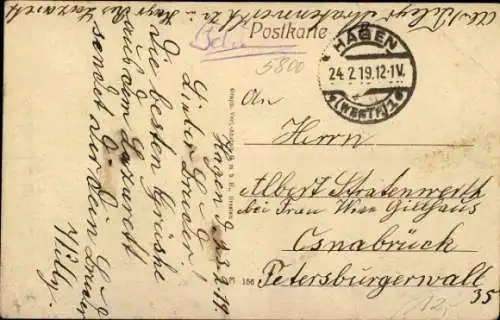 Postkarte
5800
HAGEN
24.2.19.12-1V.
1 (WESTF.) 1
An
Herrn
Albert Stratenwerth
bei Frau Wwe Gillhaus
Osnabrück
Petersburgerwall
35
12,-
156
Hagen d. 23.2.19.
Lieber Bruder!
Die besten Grüße
aus dem Lazarett
sendet dir dein Bruder
Willy.